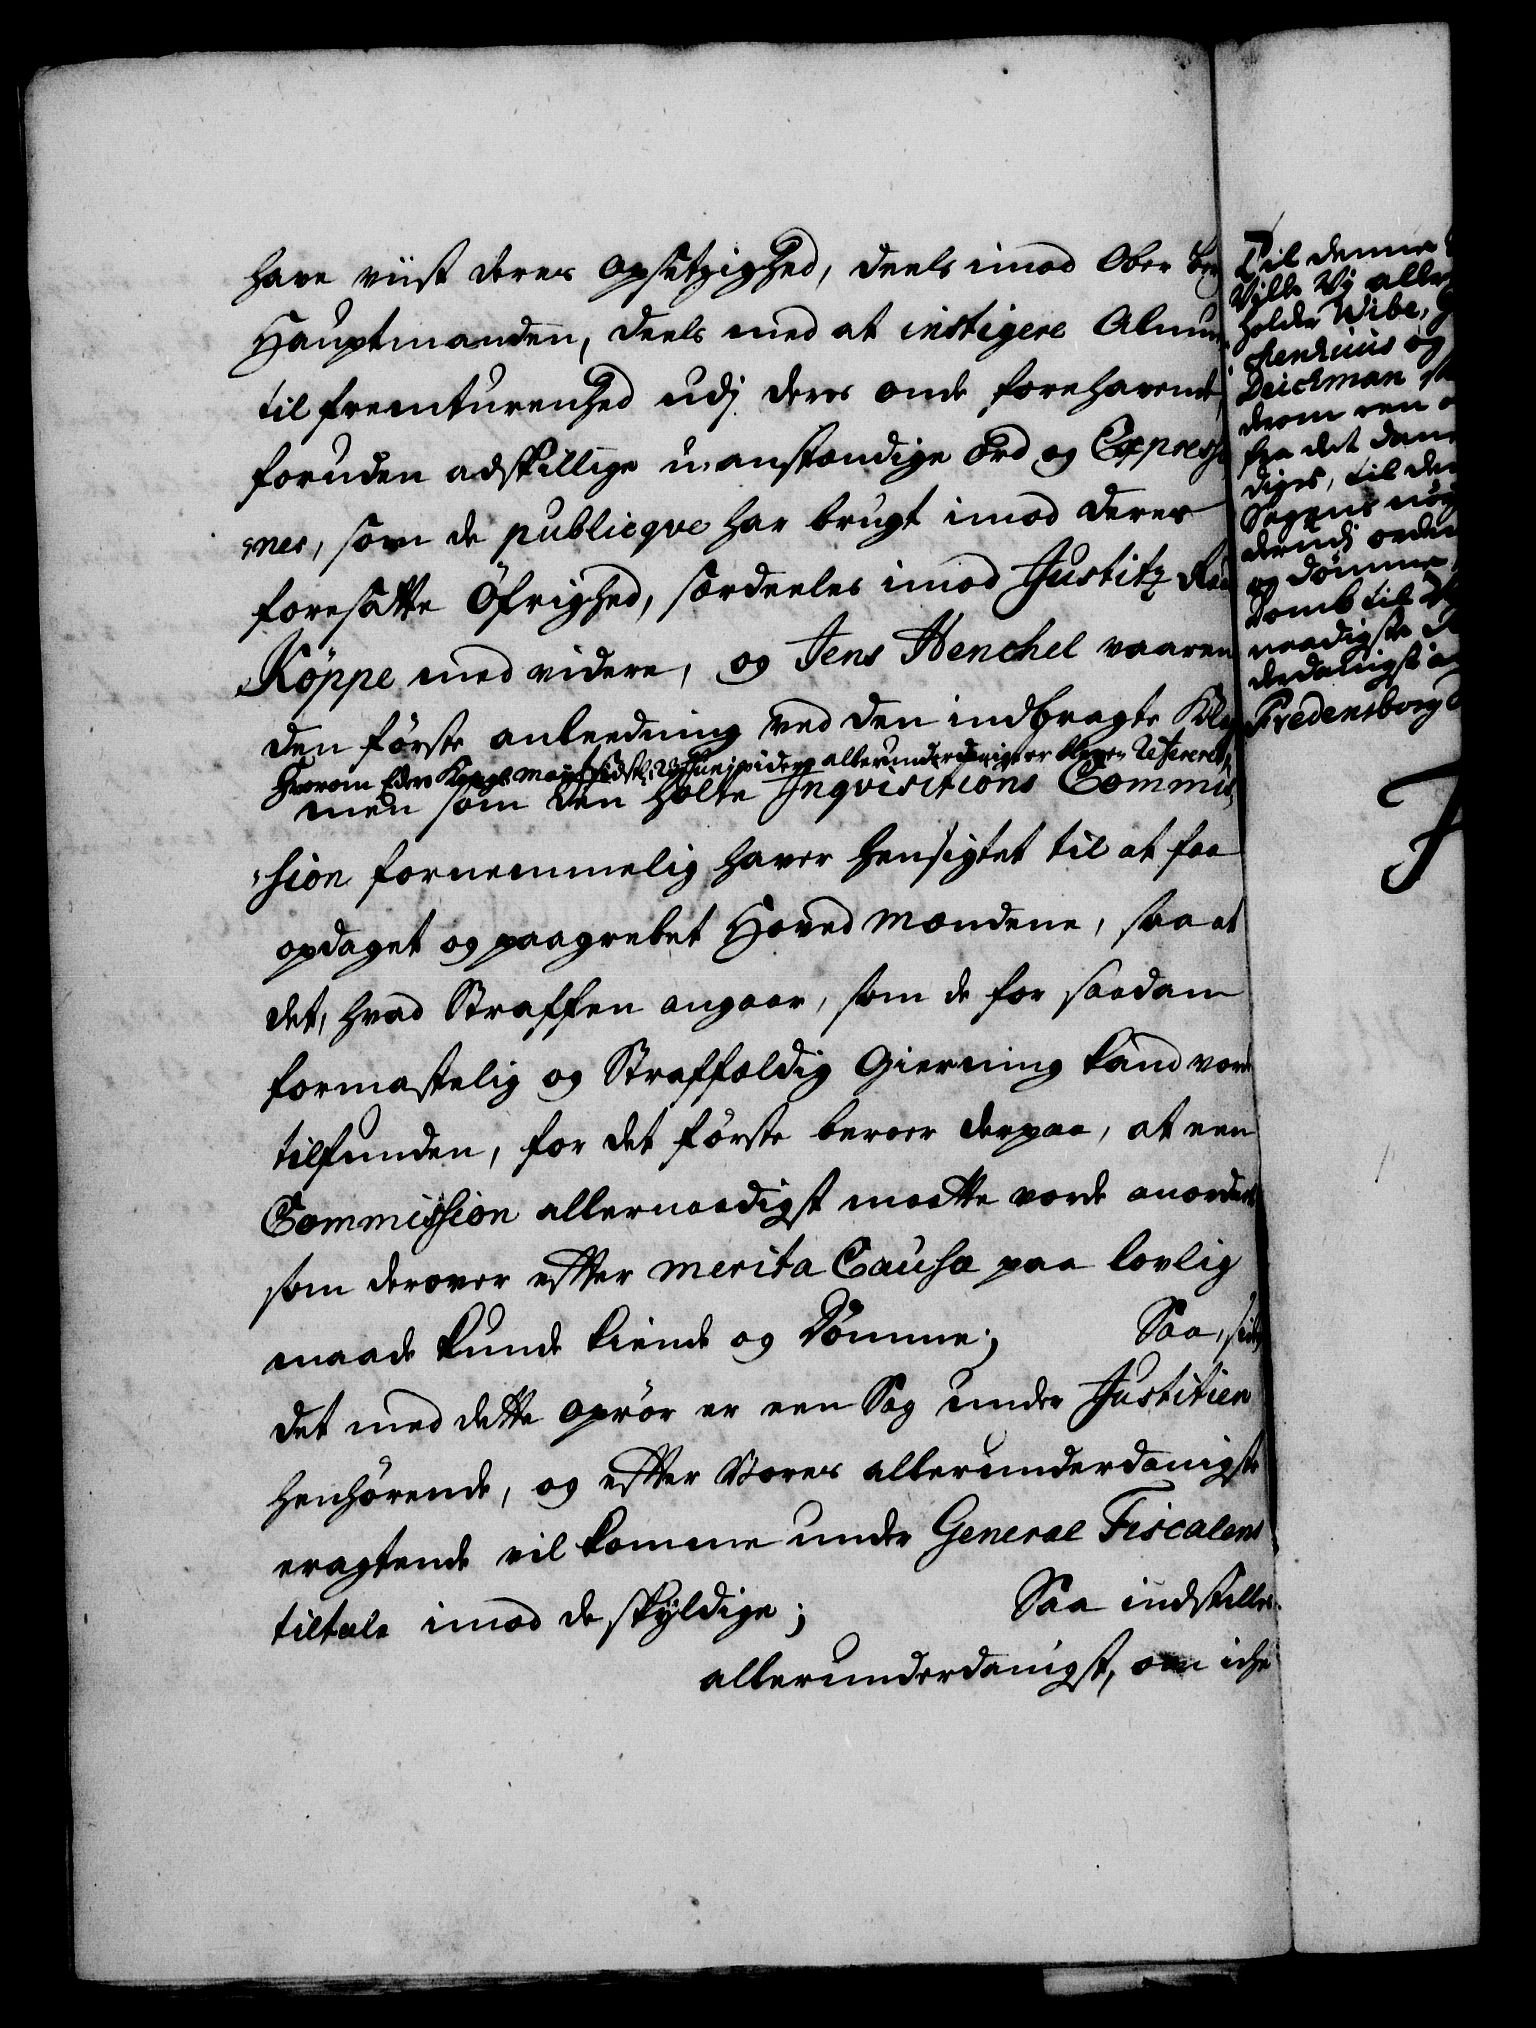 have viist deres opsetzighed, deels imod Ober Berg
Hauptmanden, deels med at instigere Almuen
til fremturenhed udj deres onde forehavende,
foruden adskillige u-anstændige Ord og Expressi-
ones, som de publicqve har brugt imod deres
foresatte Öfrighed, særdeeles imod Justitz Raad
Köppe med videre, og Jens Henchel vaaren
den förste anleedning ved den indbragte
Hvorom Eders Kongl. Mayst. sidst allerunderdanigst er bleven Refereret,
men som den holte Inqvisitions Commis-
sion fornemmelig haver hensigtet til at faa
opdaget og paagrebet Hoved Mændene, saa at
det, hvad Straffen angaar, som de for saadan
formastelig og Straffældig Gierning kand vorde
tilfunden, for det förste beroer derpaa, at een
Commission allernaadigst maatte vorde anordnet
som derover effter merita Causæ paa lovlig
maade kunde kiende og Dömme; Saa, siden
det med dette oprör er een Sag under Justitien
henhörende, og effter Vores allerunderdanigste
eragtende vil komme under General Fiscalens
tiltale imod de skyldige; Saa indstilles
allerunderdanigst, om icke
Til denne
Ville Vi aller
holder Wibe,
Deickman
derom een
fra det dan
til den
Sagens
derudj
og dömme
Somb til
naadigste
derdanigst
Fredensborg